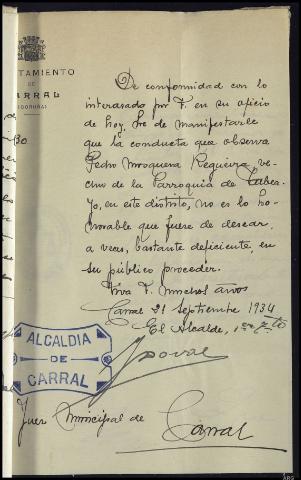 AYUNTAMIENTO
DE
CARRAL
(CORUÑA)
De conformidad con lo
interasado por V. en su oficio
de hoy, he de manifestarle
que la conducta que observa
Pedro Mosquera Regueira ve-
cino de la Parroquia de
en este distrito, no es lo ho-
norable que fuere de desear,
a veces, bastante deficiente, en
su público proceder.
Viva V. muchos años
Carral 21 Septiembre 1934
El Alcalde,
ALCALDIA
DE
CARRAL
Juez Municipal de
Carral